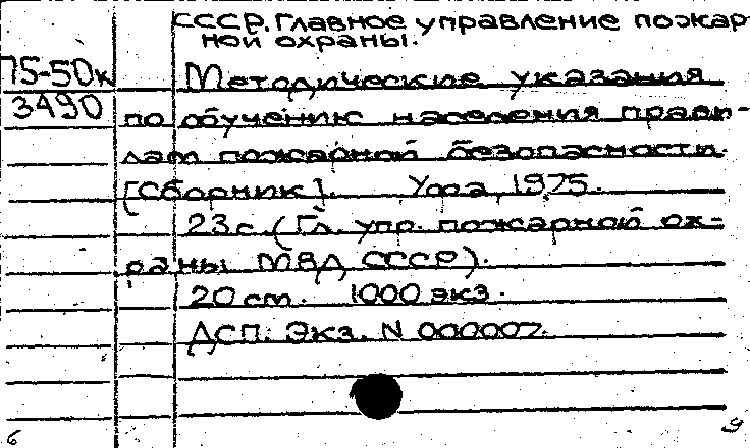 СССР. Главное управление пожар
ной охраны.
75-50к
3490
Методические указания
по обучению населения прави-
лам пожарной безопасности.
[Сборник]. Уфа, 1975.
23 с. (Гл. упр. пожарной ох-
раны МВД СССР).
20 см. 1000 экз.
ДСП. Экз. N 000007.
6
9